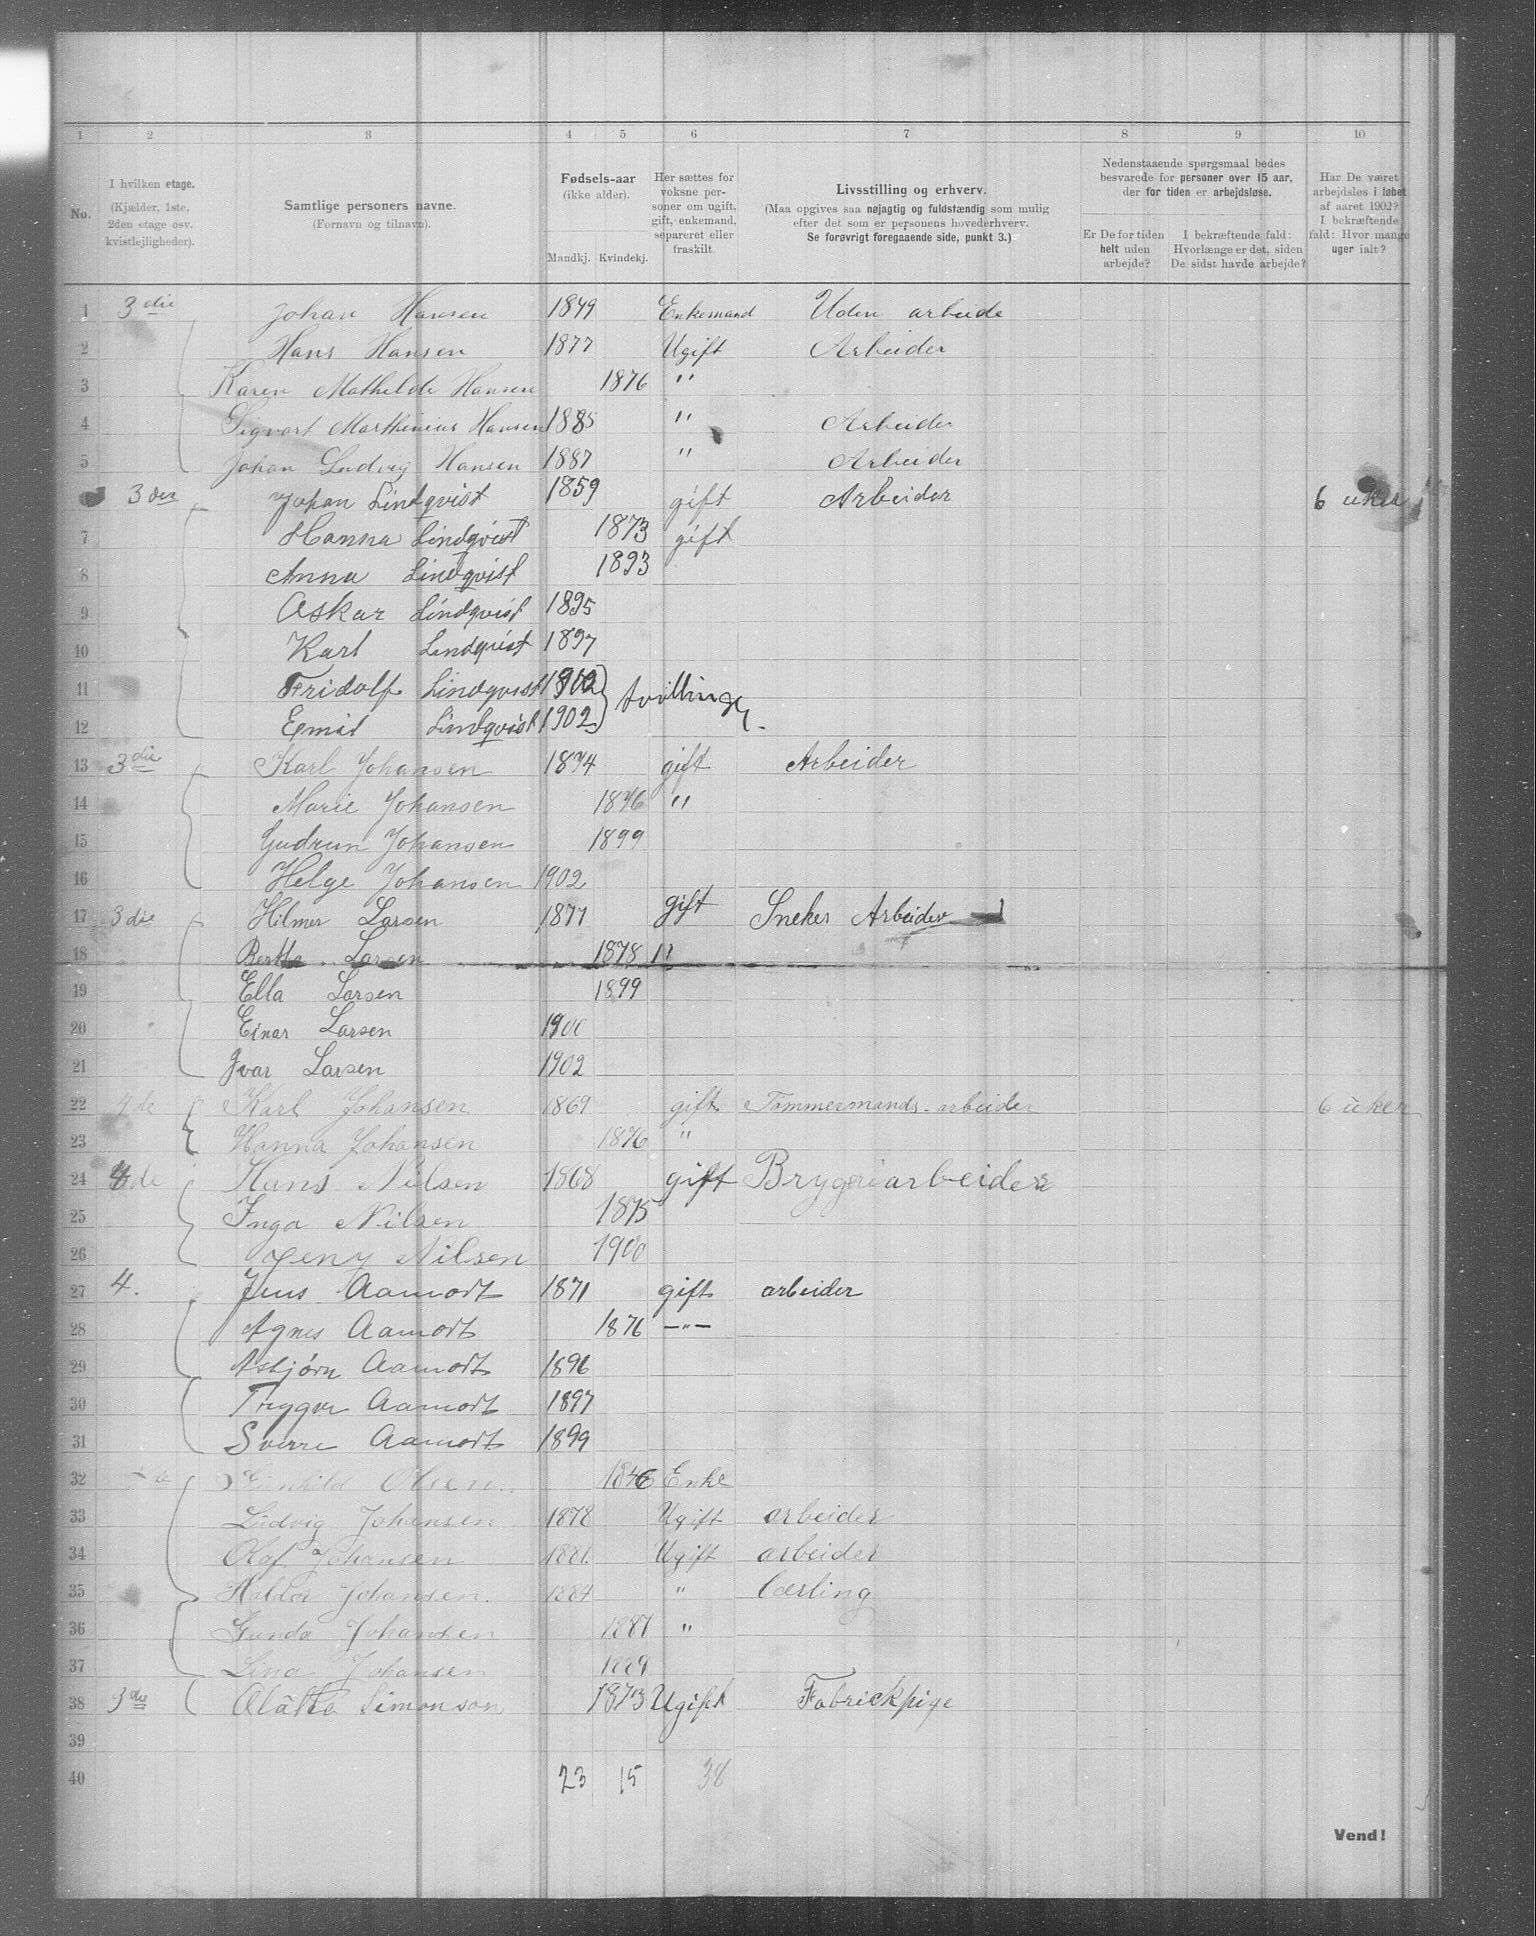 1 2 3 4 5 6 7 8 9 10
No.
I hvilken etage. (Kjælder, 1ste, 2den etage osv. kvistlejligheder).
Samtlige personers navne. (Fornavn og tilnavn).
Fødsels-aar (ikke alder). Mandkj. Kvindekj.
Her sættes for voksne personer om ugift, gift, enkemand, separeret eller fraskilt.
Livsstilling og erhverv. (Maa opgives saa nøjagtig og fuldstændig som mulig efter det som er personens hovederhverv. Se forøvrigt foregaaende side, punkt 3.)
Nedenstaaende spørgsmaal bedes besvarede for personer over 15 aar, der for tiden er arbejdsløse.
Er De for tiden helt uden arbejde?
I bekræftende fald: Hvorlænge er det, siden De sidst havde arbejde?
Har De været arbejdsløs i løbet af aaret 1902? I bekræftende fald: Hvor mange uger ialt?
1 3die Johan Hansen 1849 Enkemand Uden arbeide
2 Hans Hansen 1877 Ugift Arbeider
3 Karen Mathilde Hansen 1876 "
4 Sigvart Marthinius Hansen 1885 " Arbeider
5 Johan Ludvig Hansen 1887 " Arbeider
3die Johan Lindqvist 1859 gift Arbeider 6 uker
7 Hanna Lindqvist 1873 gift
8 Anna Lindqvist 1893
9 Oskar Lindqvist 1895
10 Karl Lindqvist 1897
11 Fridolf Lindqvist 1902 } tvillinger
12 Emil Lindqvist 1902
13 3die Karl Johansen 1874 gift Arbeider
14 Marie Johansen 1876 "
15 Gudrun Johansen 1899
16 Helge Johansen 1902
17 3die Hilmer Larsen 1877 gift Sneker Arbeider
18 Bertha Larsen 1878 "
19 Ella Larsen 1899
20 Einar Larsen 1900
21 Ivar Larsen 1902
22 4de Karl Johansen 1869 gift Tømmermands-arbeider 6 uker
23 Hanna Johansen 1876 "
24 4de Hans Nielsen 1868 gift Bryggeriarbeider
25 Inga Nilsen 1875
26 Jeny Nilsen 1900
27 4. Jens Aamodt 1871 gift arbeider
28 Agnes Aamodt 1876 —"—
29 Asbjørn Aamodt 1896
30 Trygve Aamodt 1897
31 Sverre Aamodt 1899
32 Gunhild Olsen 1846 Enke
33 Ludvig Johansen 1878 Ugift arbeider
34 Olaf Johansen 1881 Ugift arbeider
35 Haldor Johansen. 1884 " lærling
36 Gunda Johansen 1887 "
37 Lina Johansen 1889
38 3die Simonson 1873 Ugift Fabrickpige
39
40 23 15 38
Vend!